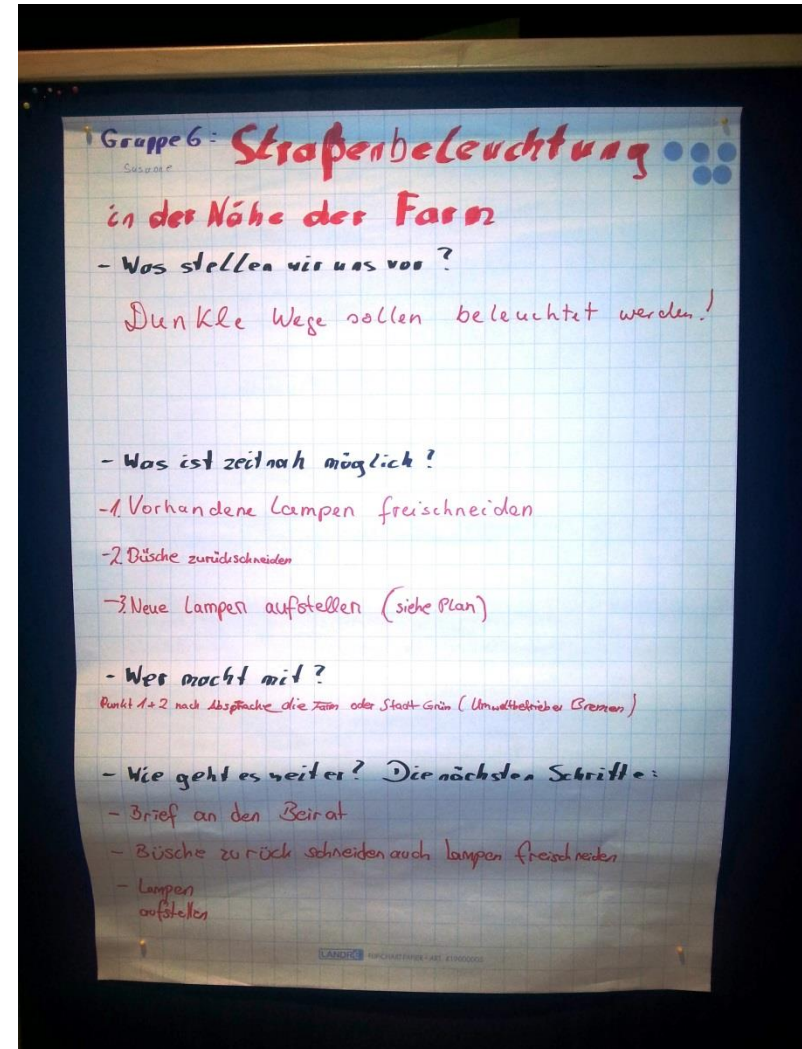 Gruppe 6: Straßenbeleuchtung
Susanne
in der Nähe der Farm
- Was stellen wir uns vor?
Dunkle Wege sollen beleuchtet werden!
- Was ist zeitnah möglich?
-1. Vorhandene Lampen freischneiden
-2. Büsche zurückschneiden
-3. Neue Lampen aufstellen (siehe Plan)
- Wer macht mit?
Punkt 1+2 nach Absprache die Farm oder Stadt Grün (Umweltbetriebe Bremen)
- Wie geht es weiter? Die nächsten Schritte:
- Brief an den Beirat
- Büsche zurück schneiden auch lampen freischneiden
- Lampen
aufstellen